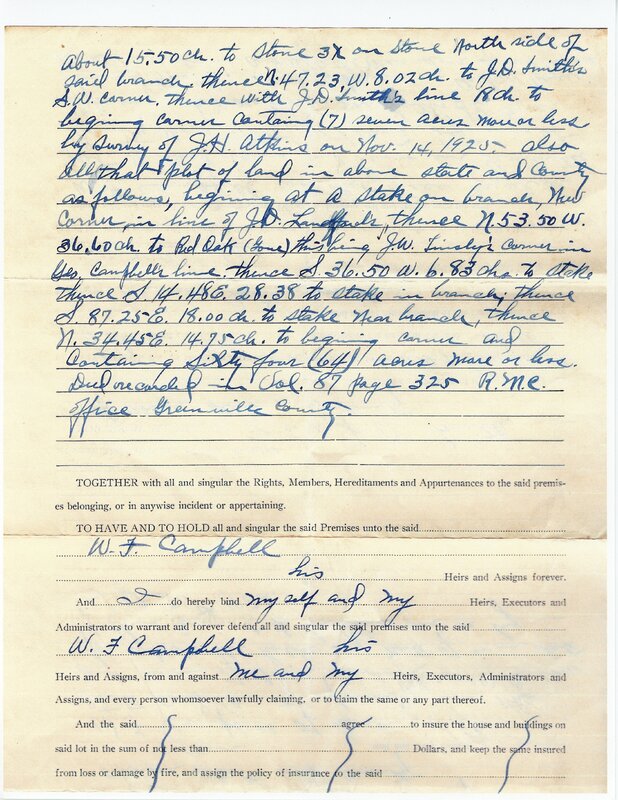 About 15.50 ch. to Stone 3X on Stone North side of
said branch, thence N.47.23, W. 8.02 ch. to J.D. Smith's
S.W. corner, thence with J.D. Smith's line 18 ch. to
begining corner Containg (7) seven acres more or less
by survey of J.H. Atkins on Nov. 14, 1925. also
all that plot of land in above state and County
as follows, begining at a stake on branch, New
Corner, in line of J.D. thence N. 53.50 W.
36.60 ch. to Red Oak (Gone) J.W. Corner in
Geo. Campbell's line, thence S 36.50 W. 6.83 chs. to stake
thence S 14.48 E. 28.38 to stake in branch, thence
S 87.25 E. 18.00 ch. to stake Near branch, thence
N. 34.45 E. 14.75 ch. to begining corner and
Containing Sixty four (64) acres more or less.
Deed recorded in Vol. 87 page 325 R.M.C.
office Greenville County.
TOGETHER with all and singular the Rights, Members, Hereditaments and Appurtenances to the said premis-
es belonging, or in anywise incident or appertaining.
TO HAVE AND TO HOLD all and singular the said Premises unto the said
W. F. Campbell
his Heirs and Assigns forever.
And I do hereby bind my self and my Heirs, Executors and
Administrators to warrant and forever defend all and singular the said premises unto the said
W. F Campbell his
Heirs and Assigns, from and against me and my Heirs, Executors, Administrators and
Assigns, and every person whomsoever lawfully claiming, or to claim the same or any part thereof.
And the said agree to insure the house and buildings on
said lot in the sum of not less than Dollars, and keep the same insured
from loss or damage by fire, and assign the policy of insurance to the said